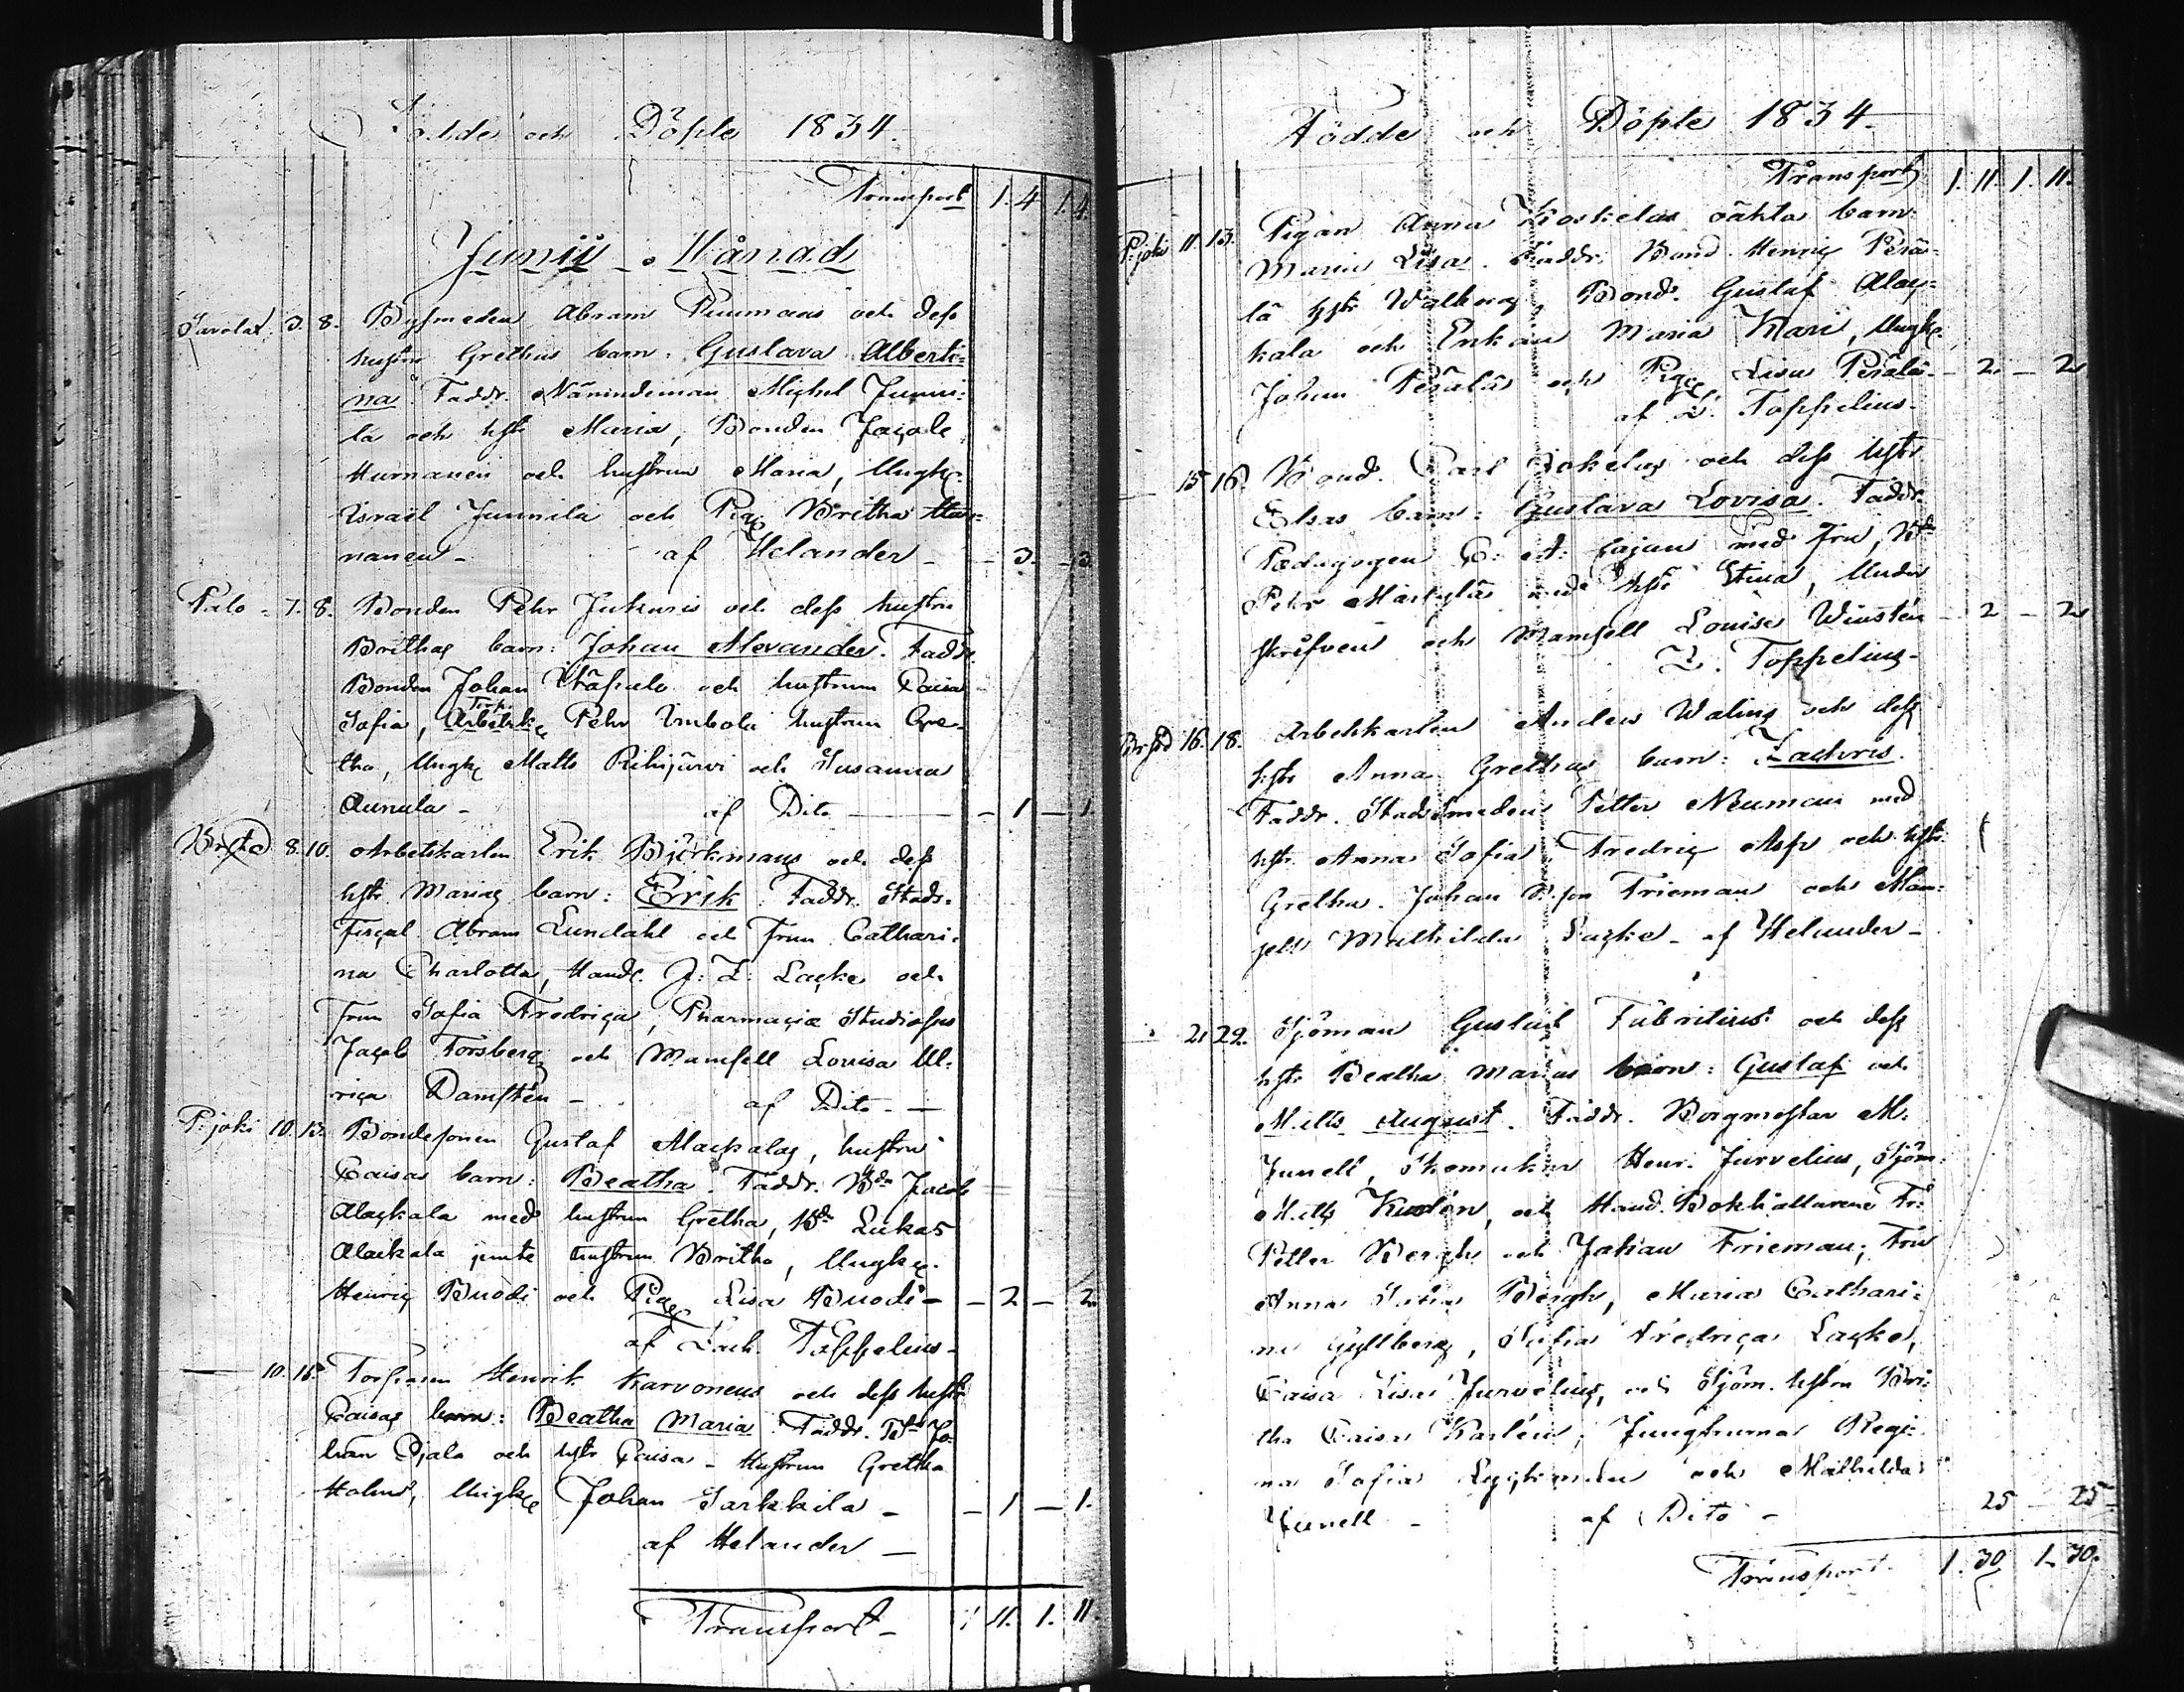 Födde och Döpte 1834.
Transport 1. 4 1. 4.
Junii Månad
3. 8. Bysmeden Abram Puumans och dess
hustru Grethas barn: Gustava Alberti-
na. Faddr. Nämndeman Michel Junni-
la och hstr Maria, Bonden Jacob
Hurnanen och hustrun Maria, Ungk.
Israel Junnila och Pig. Britha
nanen - af Helander - - 3. - 3.
Palo - 7. 8. Bonden Pehr Juhuris och dess hustru
Brithas barn: Johan Alexander. Faddr.
Bonden Johan och hustrun Caisa
Torp.
Sofia, Arbetsk. Pehr Imbola hustrun Gre-
tha, Ungk. Matts Rihijärvi och Susanna
Aunula - af Dito - 1 - 1.
Br.sta 8. 10. Arbetskarlen Erik Björkmans och dess
hstr. Marias barn: Erik. Faddr. Stads-
Fiscal Abram Lundahl och Frun Cathari-
na Charlotta, Handl. J: Z: Lacke och
Frun Sofia Fredrica, Pharmaciæ Studiosus
Jacob Forsberg och Mamsell Lovisa Ul-
rica Damstén - af Dito -
P:joki 10. 13. Bondesonen Gustaf Alackalas, hustru
Caisas barn: Beatha. Faddr. Bdn Jacob
Alackala med hustrun Gretha, Bdn Lukas
Alackala jemte hustrun Britha, Ungk.
Henric Buodi och Pig. Lisa Buodi - - 2 - 2
af Zach. Toppelius -
10. 15. Torparen Henrik Karvonens och dess hustr
Caisas barn: Beatha Maria. Faddr. Bd Jo-
han Ojala och hstr Caisa - Hustrun Gretha
Holm, Ungk. Johan Sarkkila - - 1 - 1.
af Helander -
Transport - 1 11. 1. 11.
Födde och Döpte 1834.
Transport 1. 11. 1. 11.
P:joki 11. 13. Pigan Anna Koskelas oäkta barn:
Maria Lisa. Faddr. Bond. Henric Perä-
lä hstr Walborg, Bond. Gustaf Alac-
kala och Enkan Maria Kari, Ungk.
Johan Perälä och Pig. Lisa Perälä - 2 - 2
af Z: Toppelius -
15 16. Bond. Carl Jokelas och dess hstr
Elsas barn: Gustava Lovisa. Faddr.
Pædagogen C: A: Cajan med Fru, Bdn
Pehr Märsylä med hstr Stina, Under
skrifven och Mamsell Louise Winstén - 2 - 2
Z. Toppelius -
16. 18. Arbetskarlen Anders Walins och dess
hstr Anna Grethas barn: Zachris.
Faddr. Stadssmeden Petter Neuman med
hstr Anna Sofia Fredric Asp och hstr
Gretha. Johan Frieman och Mam-
sell Mathilda Lacke - af Helander -
21 22. Sjöman Gustaf Fabritius och dess
hstr Beatha Marias barn: Gustaf och
Matts August. Faddr. Borgmestar M.
Junell, Skomakar Henr. Jurvelius, Sjöm.
Matts Karlén, och Hand. Bokhållarena Fr.
Petter Bergh och Johan Frieman, Fru
Anna Bergh, Maria Cathari-
na Gyllberg, Sofia Fredrica Lacke,
Caisa Lisa Jurvelius, och Sjöm. hstru Bri-
tha Caisa Karlén, Jungfruma Regi-
na Sofia och Mathilda
Junell - af Dito - 25 - 25
Transport. 1. 30 1. 30.